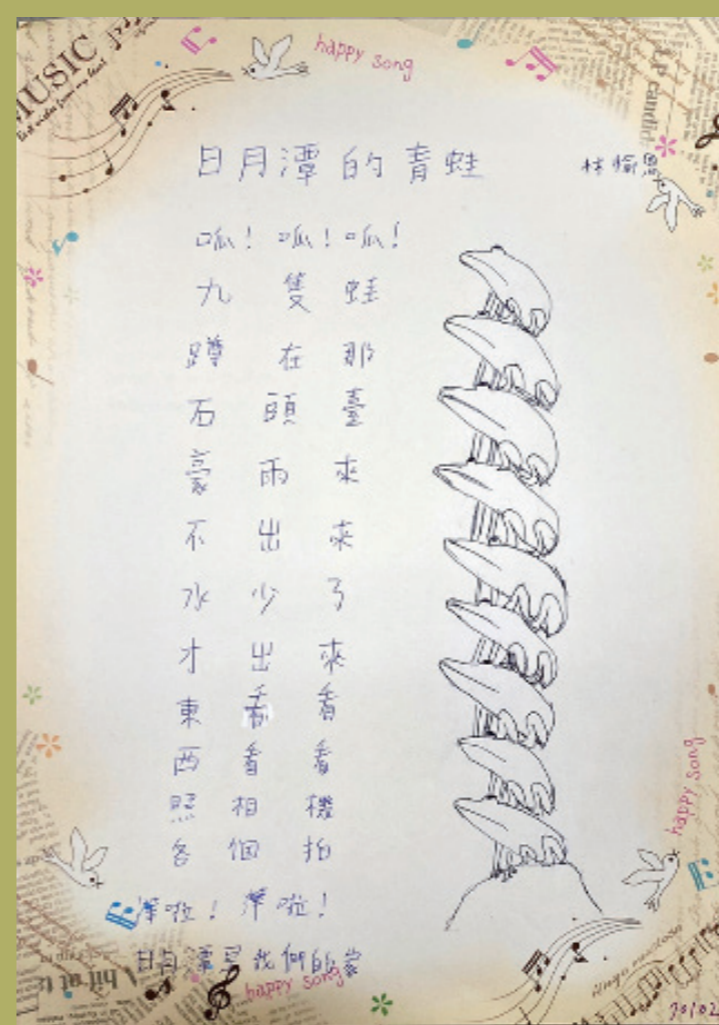 MUSIC
happy song
日月潭的青蛙
林愉恩
呱！呱！呱！
九隻蛙
蹲在那
石頭臺
豪雨來
不出來
水少了
才出來
東看看
西看看
照相機
各個拍
嘩啦！嘩啦！
日月潭是我們的家
happy song
happy song